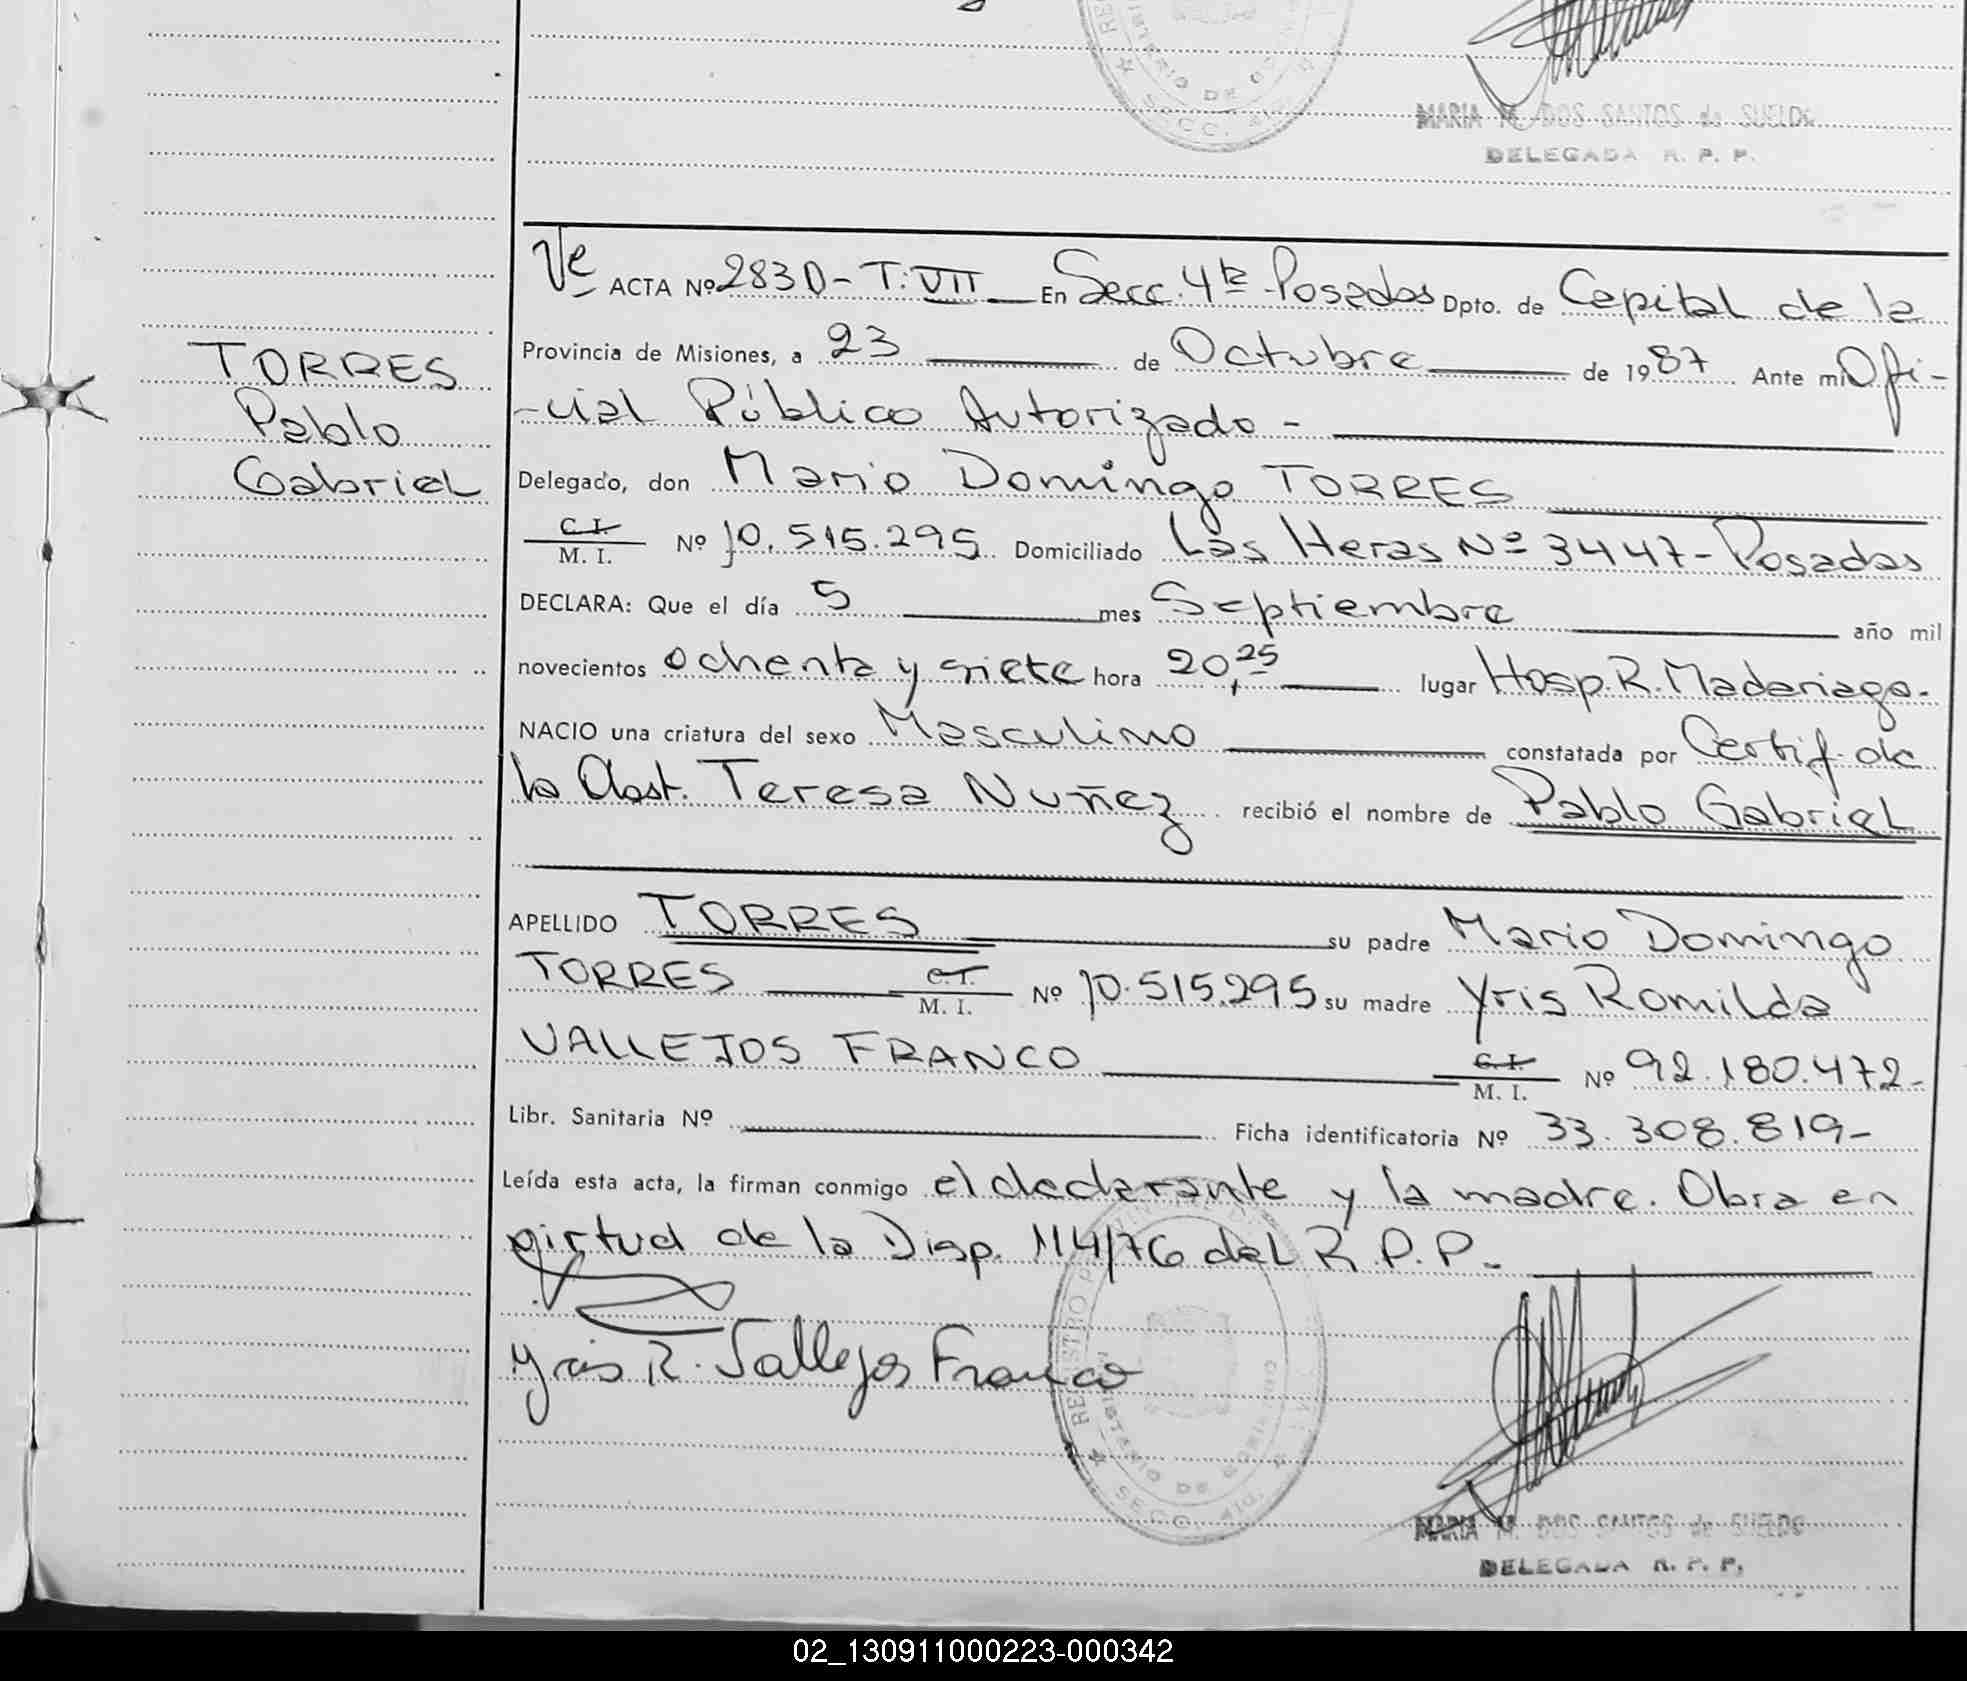 MARIA M. DOS SANTOS de SUELDO
DELEGADA R. P. P.
Ve ACTA Nº 2830 - T: VII En Secc. 4ta Posadas Dpto. de Capital de la
Provincia de Misiones, a 23 de Octubre de 1987 Ante mi Ofi-
-cial Público Autorizado -
TORRES
Pablo
Gabriel
Delegado, don Mario Domingo TORRES
C. I.
M. I. Nº 10.515.295 Domiciliado Las Heras Nº 3447 - Posadas
DECLARA: Que el día 5 mes Septiembre año mil
novecientos ochenta y siete hora 20,25 lugar Hosp. R. Madariaga.
NACIO una criatura del sexo Masculino constatada por Certif. de
la Obst. Teresa Nuñez recibió el nombre de Pablo Gabriel
APELLIDO TORRES su padre Mario Domingo
TORRES C. I. M. I. Nº 10.515.295 su madre Yris Romilda
VALLEJOS FRANCO C. I. M. I. Nº 92.180.472-
Libr. Sanitaria Nº Ficha identificatoria Nº 33.308.819-
Leída esta acta, la firman conmigo el declarante y la madre. Obra en
virtud de la Disp. 114/76 del R.P.P.-
Yris R. Vallejos Franco
MARIA M. DOS SANTOS de SUELDO
DELEGADA R. P. P.
02_130911000223-000342